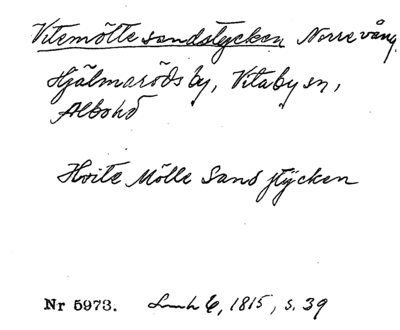 Vitemölle sandstycken Norrevång,
Hjälmaröds by, Vitaby sn,
Albo hd
Hvite Mölle Sand stÿcken
Nr 5973. 6, 1815, s. 39